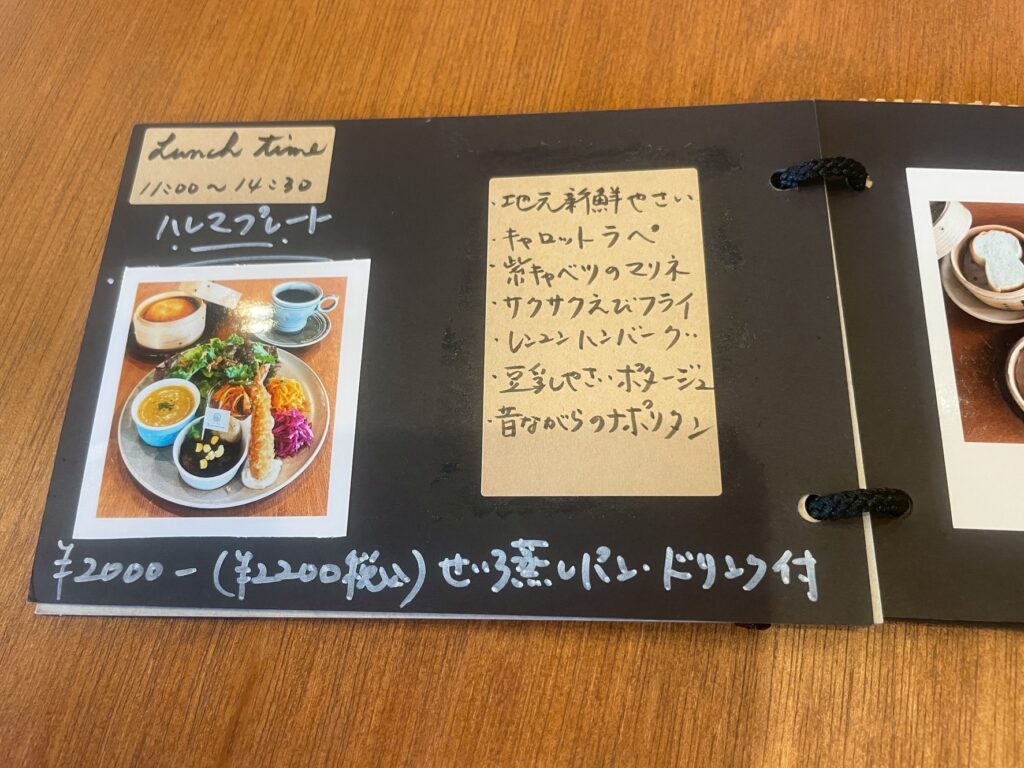 Lunch time
11:00〜14:30
ハレマプレート
・地元新鮮やさい
・キャロットラペ
・紫キャベツのマリネ
・サクサクえびフライ
・レンコンハンバーグ
・豆乳やさいポタージュ
・昔ながらのナポリタン
¥2000-(¥2200税込)せいろ蒸しパン・ドリンク付